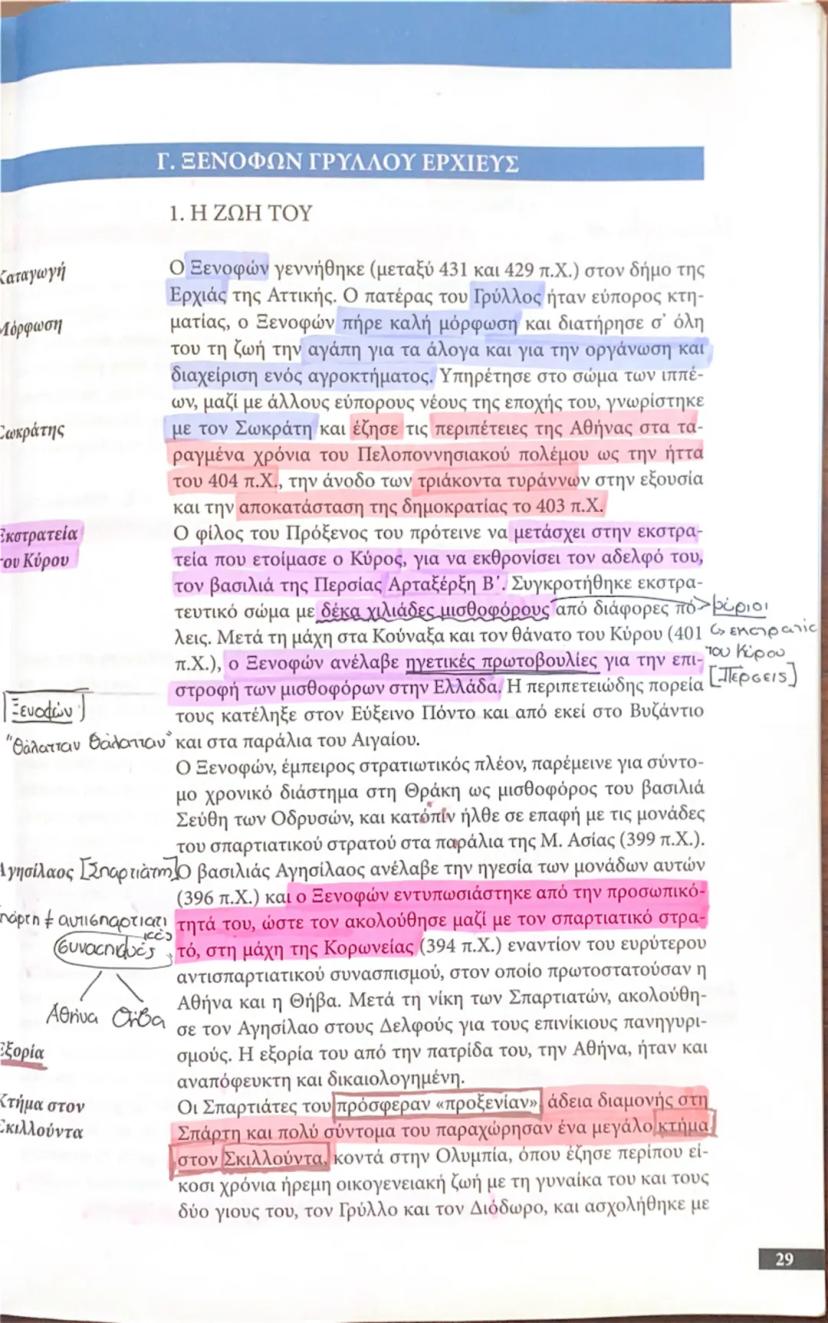 Γ. ΞΕΝΟΦΩΝ ΓΡΥΛΛΟΥ ΕΡΧΙΕΥΣ
1. Η ΖΩΗ ΤΟΥ
Καταγωγή
Μόρφωση
Σωκράτης
Ο Ξενοφών γεννήθηκε (μεταξύ 431 και 429 π.Χ.) στον δήμο της
Ερχιάς της Αττικής. Ο πατέρας του Γρύλλος ήταν εύπορος κτη-
ματίας, ο Ξενοφών πήρε καλή μόρφωση και διατήρησε σ' όλη
του τη ζωή την αγάπη για τα άλογα και για την οργάνωση και
διαχείριση ενός αγροκτήματος. Υπηρέτησε στο σώμα των ιππέ-
ων, μαζί με άλλους εύπορους νέους της εποχής του, γνωρίστηκε
με τον Σωκράτη και έζησε τις περιπέτειες της Αθήνας στα τα-
ραγμένα χρόνια του Πελοποννησιακού πολέμου ως την ήττα
του 404 π.Χ., την άνοδο των τριάκοντα τυράννων στην εξουσία
και την αποκατάσταση της δημοκρατίας το 403 π.Χ.
Εκστρατεία
του Κύρου
Ο φίλος του Πρόξενος του πρότεινε να μετάσχει στην εκστρα-
τεία που ετοίμασε ο Κύρος, για να εκθρονίσει τον αδελφό του,
τον βασιλιά της Περσίας Αρταξέρξη Β'. Συγκροτήθηκε εκστρα-
τευτικό σώμα με δέκα χιλιάδες μισθοφόρους από διάφορες πό-
λεις. Μετά τη μάχη στα Κούναξα και τον θάνατο του Κύρου (401
π.Χ.), ο Ξενοφών ανέλαβε ηγετικές πρωτοβουλίες για την επι-
στροφή των μισθοφόρων στην Ελλάδα. Η περιπετειώδης πορεία
τους κατέληξε στον Εύξεινο Πόντο και από εκεί στο Βυζάντιο
και στα παράλια του Αιγαίου.
του Κύρου
[Πέρσεις]
Ξενοφών
"Θάλατταν Θάλατταν"
Ο Ξενοφών, έμπειρος στρατιωτικός πλέον, παρέμεινε για σύντο-
μο χρονικό διάστημα στη Θράκη ως μισθοφόρος του βασιλιά
Σεύθη των Οδρυσών, και κατόπιν ήλθε σε επαφή με τις μονάδες
του σπαρτιατικού στρατού στα παράλια της Μ. Ασίας (399 π.Χ.).
Αγησίλαος [Σπαρτιάτης]
Ο βασιλιάς Αγησίλαος ανέλαβε την ηγεσία των μονάδων αυτών
(396 π.Χ.) και ο Ξενοφών εντυπωσιάστηκε από την προσωπικό-
τητά του, ώστε τον ακολούθησε μαζί με τον σπαρτιατικό στρα-
τό, στη μάχη της Κορωνείας (394 π.Χ.) εναντίον του ευρύτερου
αντισπαρτιατικού συνασπισμού, στον οποίο πρωτοστατούσαν η
Αθήνα και η Θήβα. Μετά τη νίκη των Σπαρτιατών, ακολούθη-
σε τον Αγησίλαο στους Δελφούς για τους επινίκιους πανηγυρι-
σμούς. Η εξορία του από την πατρίδα του, την Αθήνα, ήταν και
αναπόφευκτη και δικαιολογημένη.
Αθήνα Θήβα
Εξορία
Κτήμα στον
Σκιλλούντα
Οι Σπαρτιάτες του πρόσφεραν «προξενίαν», άδεια διαμονής στη
Σπάρτη και πολύ σύντομα του παραχώρησαν ένα μεγάλο κτήμα
στον Σκιλλούντα, κοντά στην Ολυμπία, όπου έζησε περίπου εί-
κοσι χρόνια ήρεμη οικογενειακή ζωή με τη γυναίκα του και τους
δύο γιους του, τον Γρύλλο και τον Διόδωρο, και ασχολήθηκε με
29